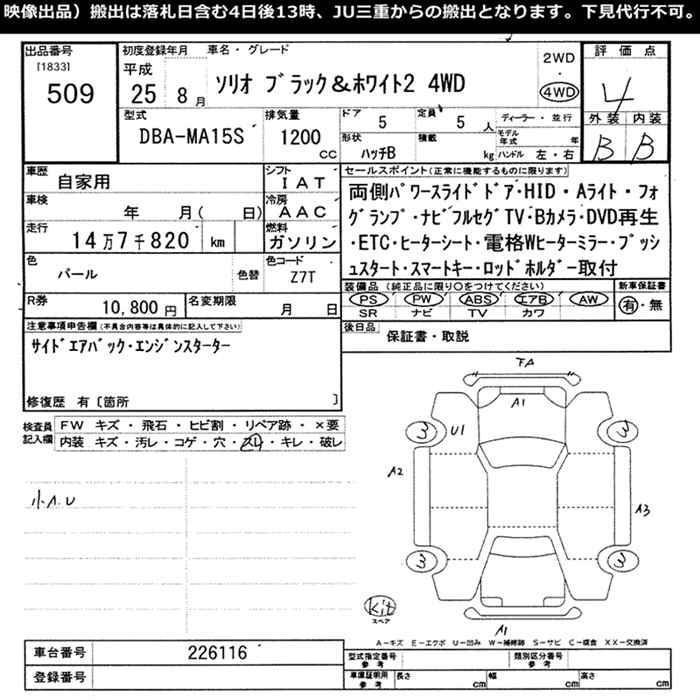 映像出品）搬出は落札日含む4日後13時、JU三重からの搬出となります。下見代行不可。
出品番号
[1833]
509
初度登録年月
平成
25年 8月
車名・グレード
ソリオ ブラック&ホワイト2 4WD
2WD
・
4WD
評価点
4
外装 内装
B B
型式
DBA-MA15S
排気量
1200
CC
ドア
5
定員
5 人
ディーラー・並行
モデル年式 年
形状
ハッチB
積載
kg
ハンドル 左・右
車歴
自家用
シフト
IAT
車検
年 月( 日)
冷房
AAC
走行
14万7千820 km
燃料
ガソリン
色
パール
色替
色コード
Z7T
R券
10,800円
名変期限
月 日
セールスポイント(正常に機能するものに限ります)
両側パワースライドドア・HID・Aライト・フォ
グランプ・ナビフルセグTV・Bカメラ・DVD再生
・ETC・ヒーターシート・電格Wヒーターミラー・プッシ
ュスタート・スマートキー・ロッドホルダー取付
装備品 (純正品に限り○をつけてください)
PS PW ABS エアB AW
SR ナビ TV カワ
新車保証書
有・無
後日品
保証書・取説
注意事項申告欄(不具合内容等は具体的に記入して下さい)
サイドエアバック・エンジンスターター
修復歴 有〔箇所 〕
検査員記入欄
FW キズ・飛石・ヒビ割・リペア跡・×要
内装 キズ・汚レ・コゲ・穴・スレ・キレ・破レ
小A.U
FA
A1
3
U1
3
A2
A3
3
3
Kit
スペア
A1
A－キズ E－エクボ U－凹み W－補修跡 S－サビ C－腐食 XX－交換済
車台番号
226116
登録番号
型式指定番号
参考
類別区分番号
参考
車庫証明用
参考
長さ cm
幅 cm
高さ cm